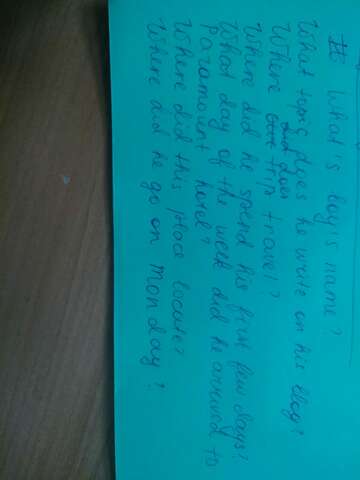 What's boy's name?
What topic does he write on his blog?
Where does trip travel?
Where did he spend his first few days?
What day of the week did he arrived to
Paramount hotel?
Where did this place locate?
Where did he go on monday?